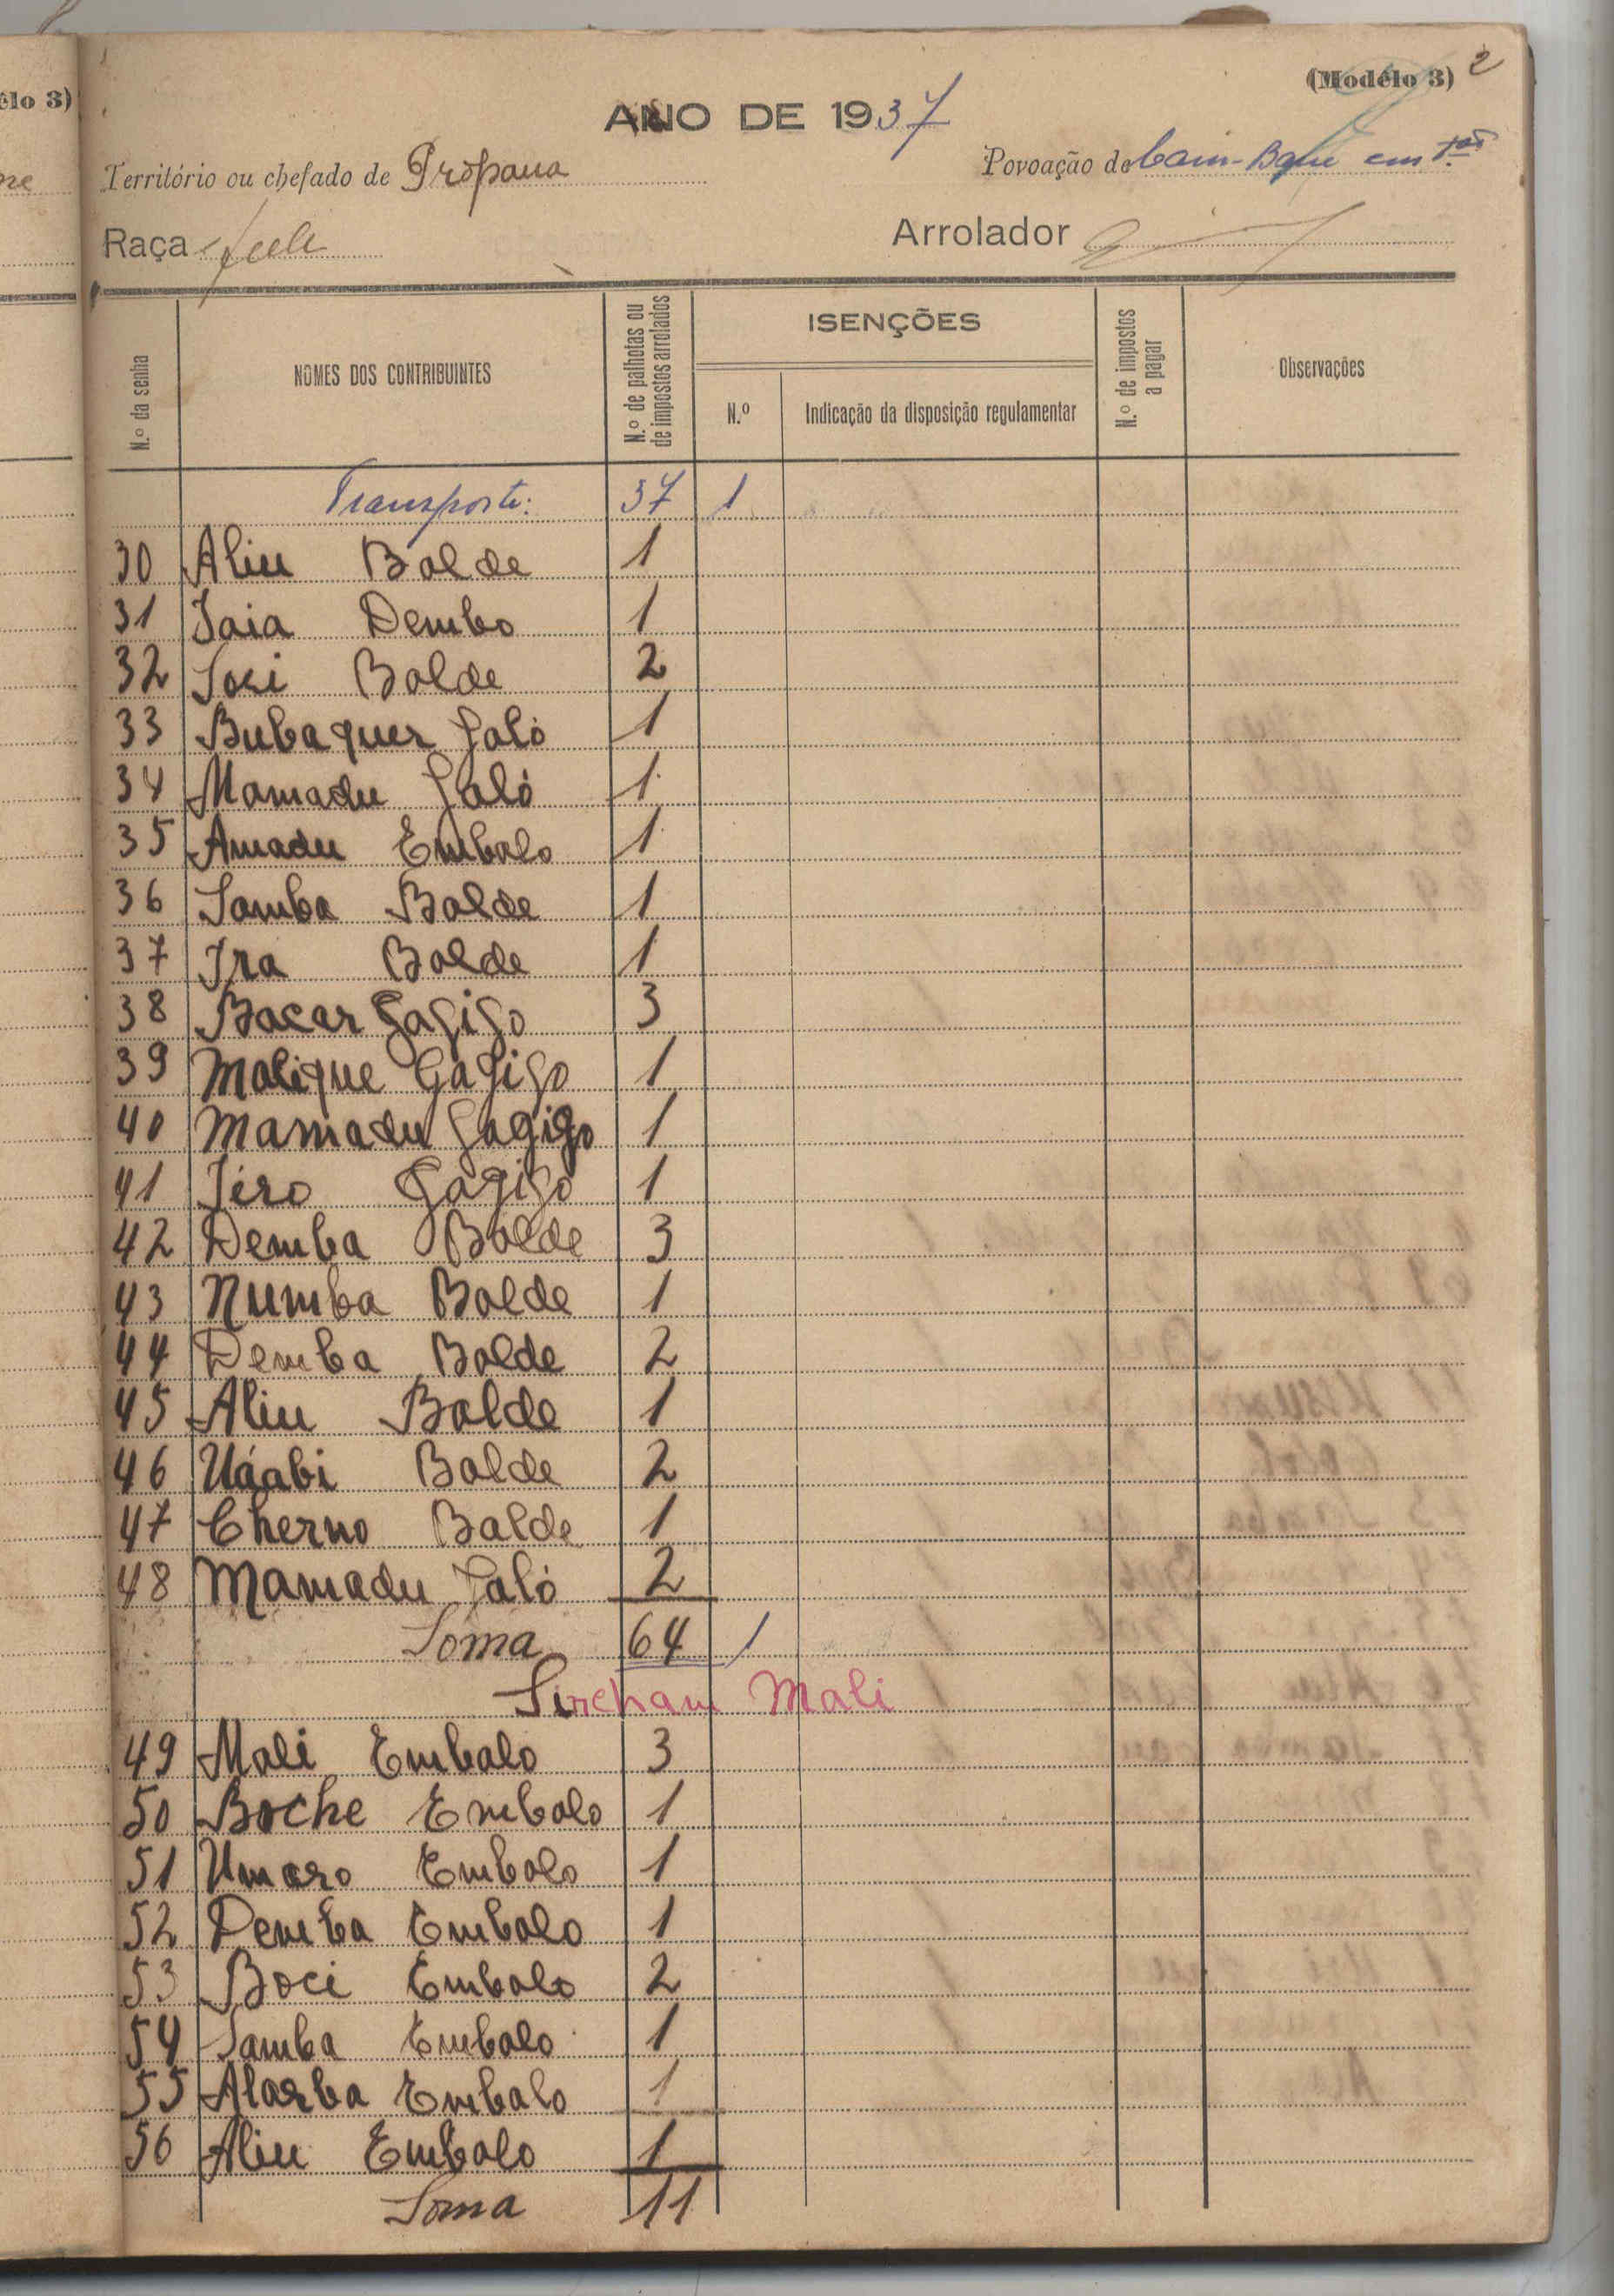 élo 3)
(Modélo 3) 2
ANO DE 1937
Território ou chefado de Propana
Povoação de
Raça
Arrolador
N.º da senha
NOMES DOS CONTRIBUINTES
N.º de palhotas ou de impostos arrolados
ISENÇÕES
N.º
Indicação da disposição regulamentar
N.º de impostos a pagar
Observações
Transporte: 37 1
30 Aliu Balde 1
31 Jaia Dembo 1
32 Balde 2
33 Bubaquer Jaló 1
34 Mamadu Jaló 1
35 Amadu Embalo 1
36 Samba Balde 1
37 Ira Balde 1
38 Bacar Gagigo 3
39 Malique Gagigo 1
40 Mamadu Gagigo 1
41 Jero Gagigo 1
42 Demba Balde 3
43 Numba Balde 1
44 Demba Balde 2
45 Aliu Balde 1
46 Uáabi Balde 2
47 Cherno Balde 1
48 Mamadu Jaló 2
Soma 64 1
Sincham Mali
49 Mali Embalo 3
50 Boche Embalo 1
51 Umaro Embalo 1
52 Demba Embalo 1
53 Boci Embalo 2
54 Samba Embalo 1
55 Alarba Embalo 1
56 Aliu Embalo 1
Soma 11